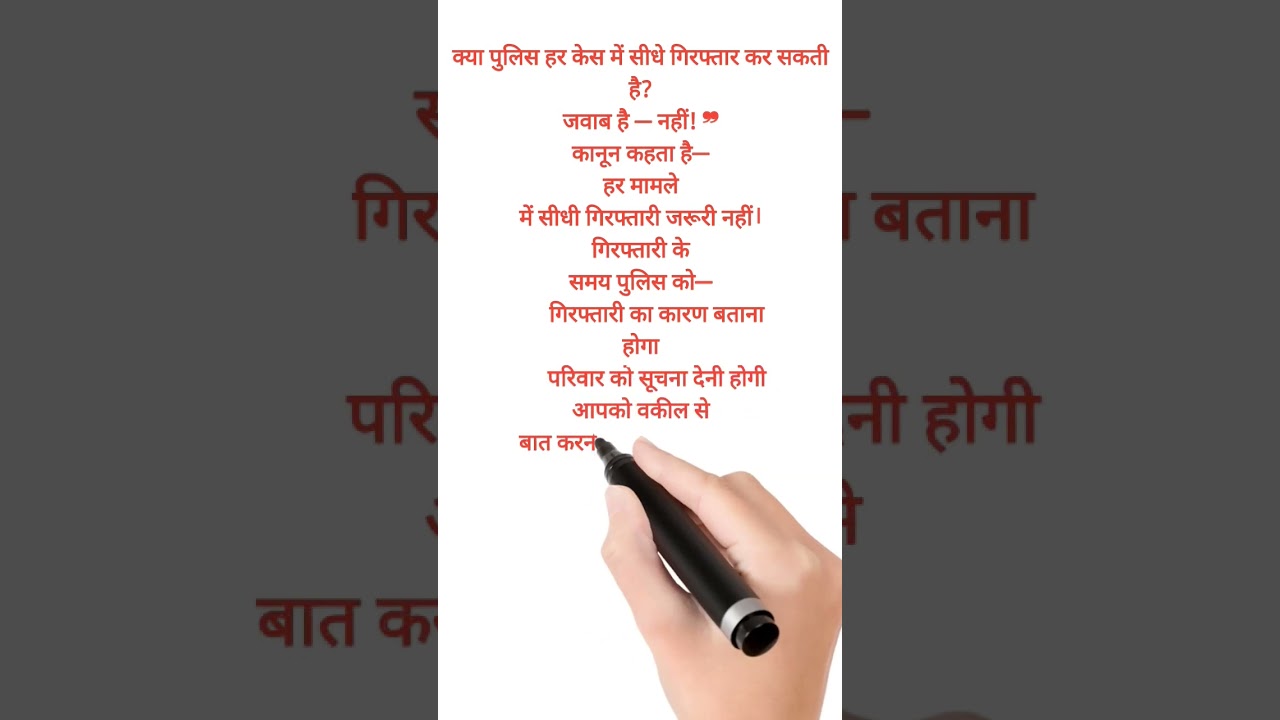 क्या पुलिस हर केस में सीधे गिरफ्तार कर सकती
है?
जवाब है — नहीं! ❞
कानून कहता है—
हर मामले
में सीधी गिरफ्तारी जरूरी नहीं।
गिरफ्तारी के
समय पुलिस को—
गिरफ्तारी का कारण बताना
होगा
परिवार को सूचना देनी होगी
आपको वकील से
बात करन